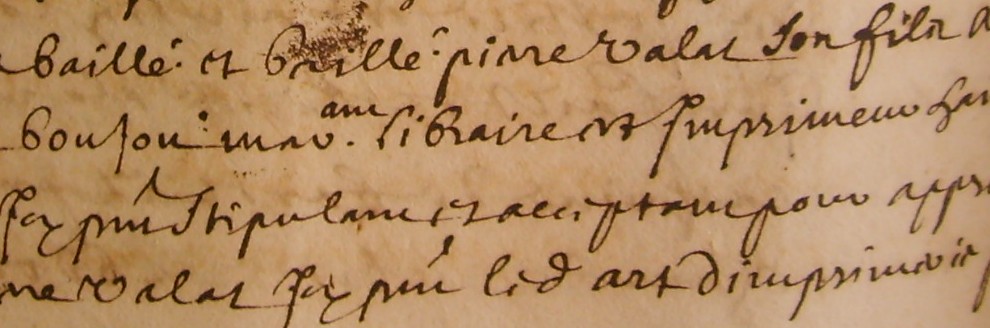 baille et baille pierre valat son filz
bouson mar. libraire et Imprimeur
Icy pnt stipulant et acceptant pour appr
rre valat Icy pnt led art dimprimerie